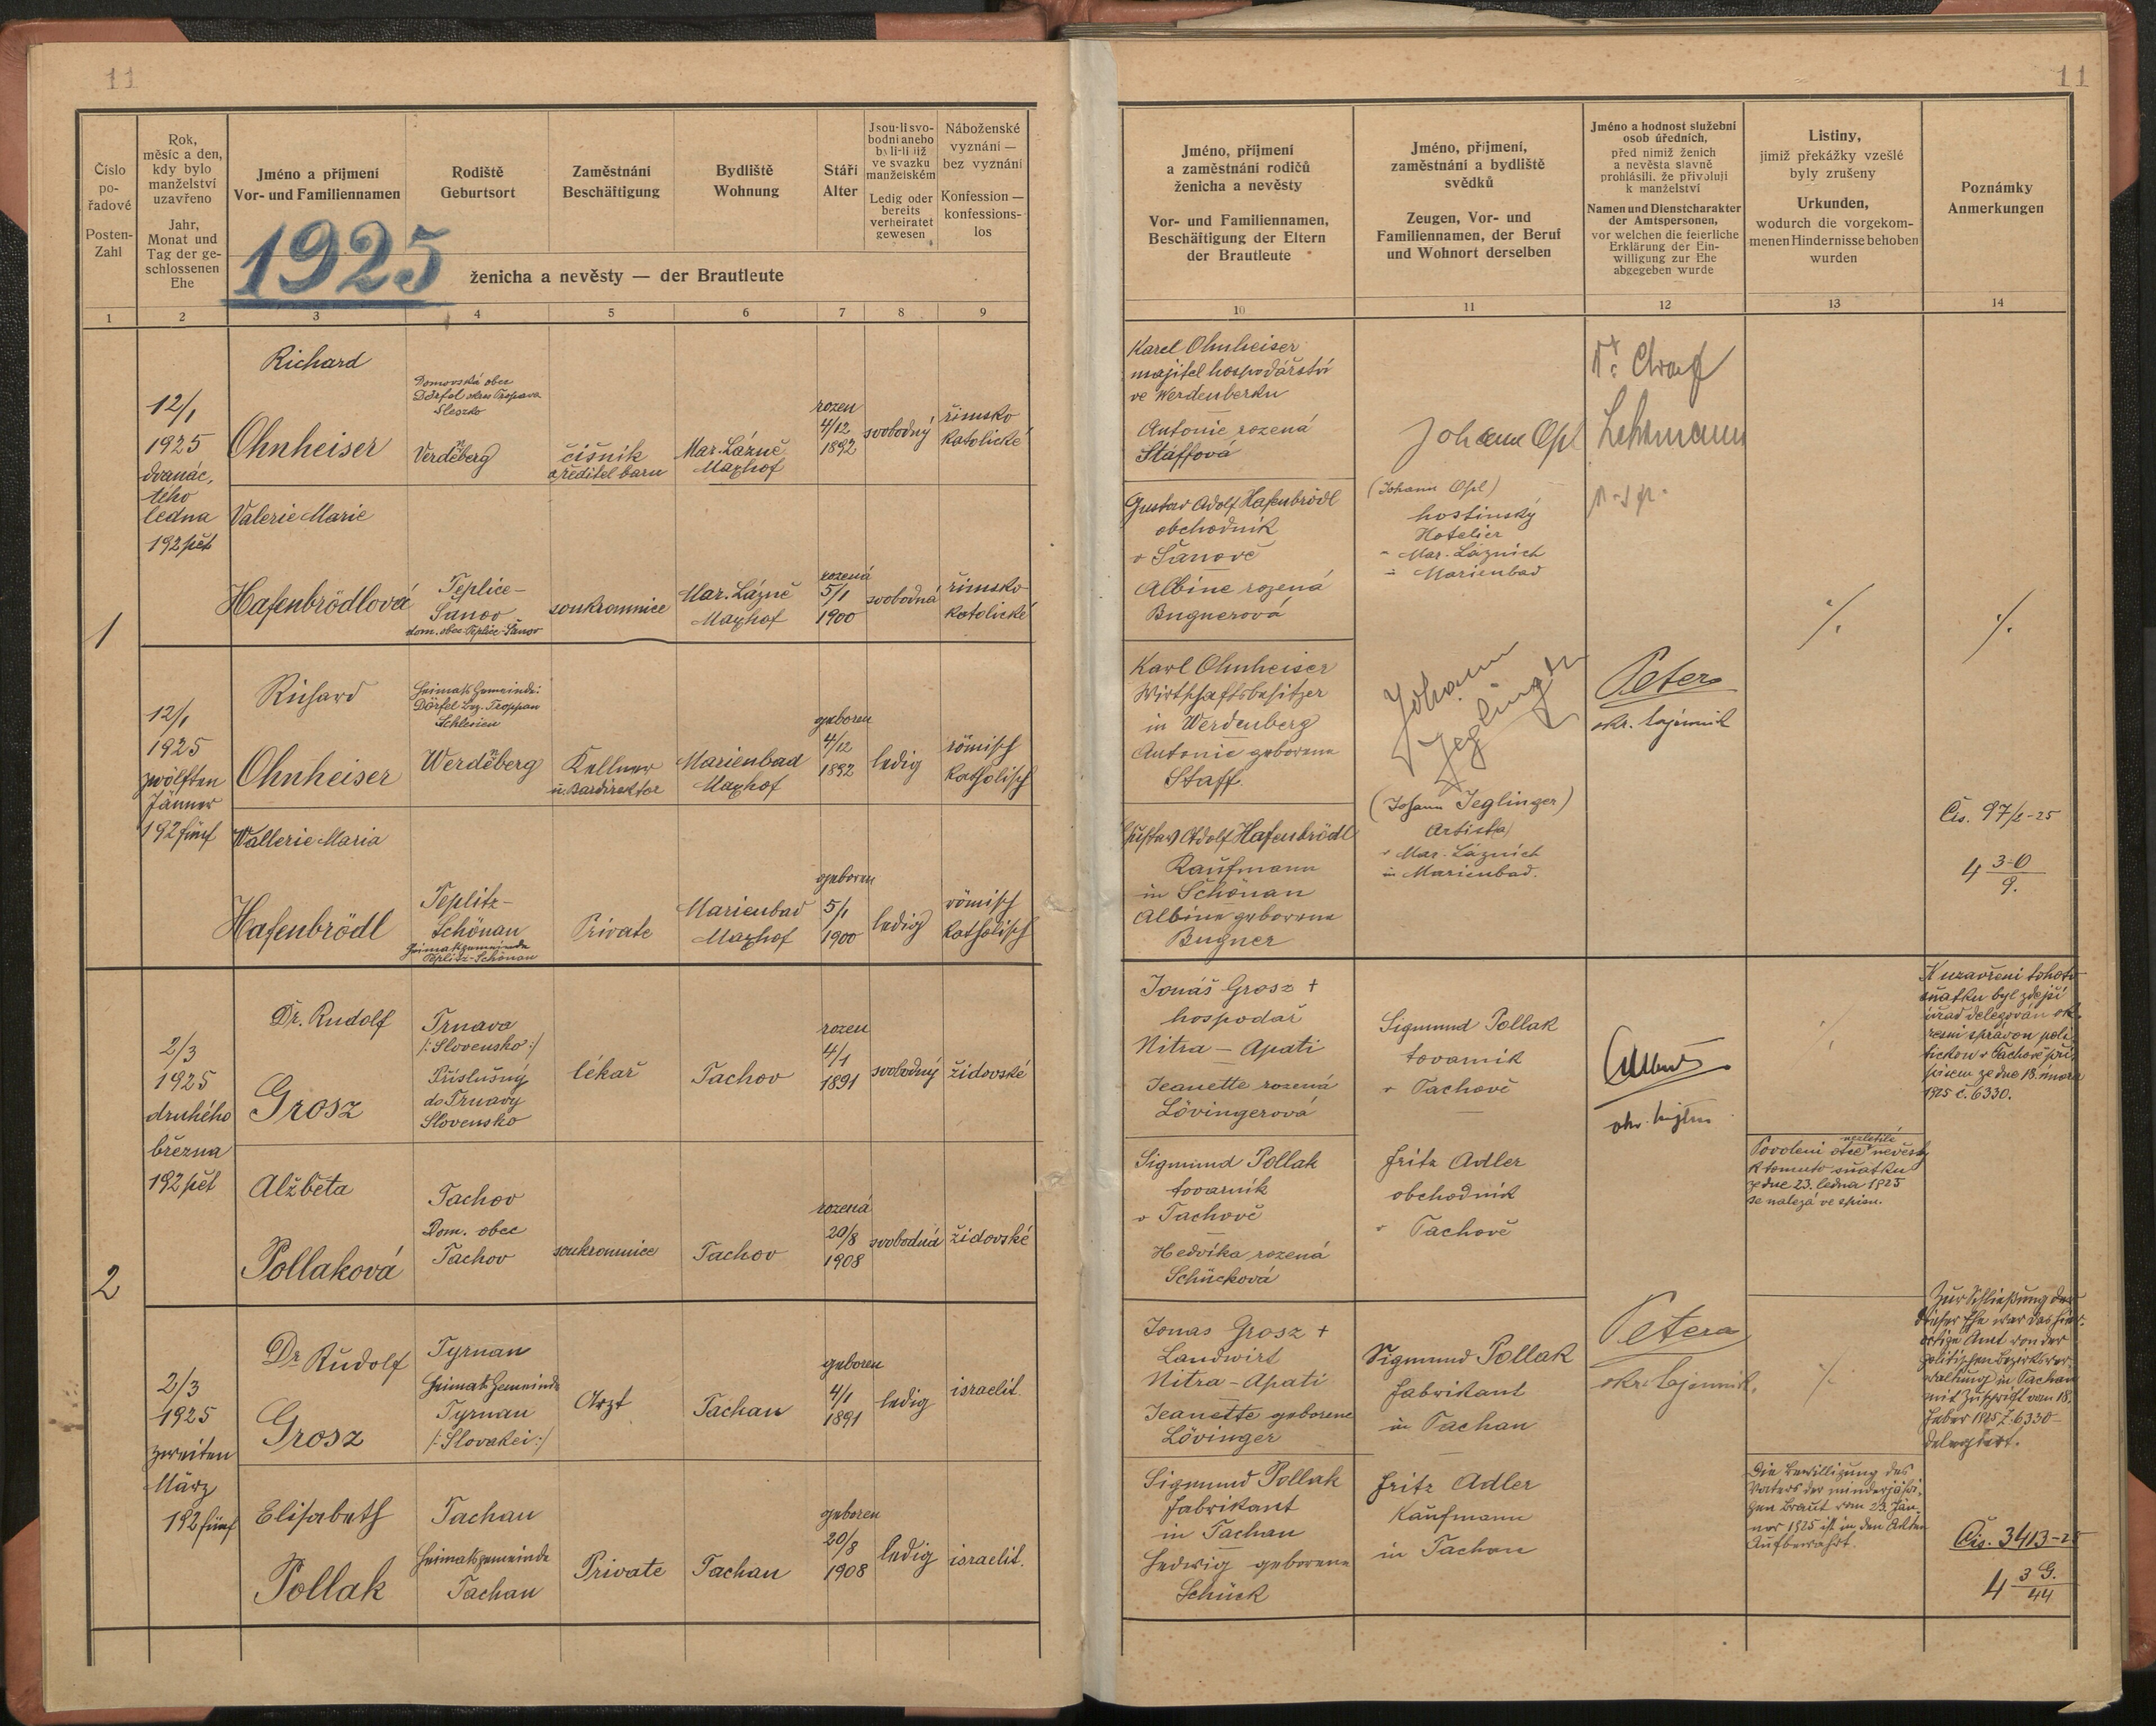 11
11
Číslo
po-
řadové
Posten-
Zahl
Rok,
měsíc a den,
kdy bylo
manželství
uzavřeno
Jahr,
Monat und
Tag der ge-
schlossenen
Ehe
Jméno a příjmení
Vor- und Familiennamen
Rodiště
Geburtsort
Zaměstnání
Beschäftigung
Bydliště
Wohnung
Stáří
Alter
Jsou-li svo-
bodni anebo
byli-li již
ve svazku
manželském
Ledig oder
bereits
verheiratet
gewesen
Náboženské
vyznání —
bez vyznání
Konfession —
konfessions-
los
1925
ženicha a nevěsty — der Brautleute
Jméno, příjmení
a zaměstnání rodičů
ženicha a nevěsty
Vor- und Familiennamen,
Beschäftigung der Eltern
der Brautleute
Jméno, příjmení,
zaměstnání a bydliště
svědků
Zeugen, Vor- und
Familiennamen, der Beruf
und Wohnort derselben
Jméno a hodnost služební
osob úředních,
před nimiž ženich
a nevěsta slavně
prohlásili, že přivolují
k manželství
Namen und Dienstcharakter
der Amtspersonen,
vor welchen die feierliche
Erklärung der Ein-
willigung zur Ehe
abgegeben wurde
Listiny,
jimiž překážky vzešlé
byly zrušeny
Urkunden,
wodurch die vorgekom-
menen Hindernisse behoben
wurden
Poznámky
Anmerkungen
1 2 3 4 5 6 7 8 9 10 11 12 13 14
1
12/1
1925
dvanác,
tého
ledna
192 pět
Richard
Ohnheiser
Domovská obec
Dörfel okres Opava
Slezsko
Verdeňberg
číšník
a ředitel baru
Mar. Lázně
Maxhof
rozen
4/12
1892
svobodný
římsko
katolické
Karel Ohnheiser
majitel hospodářství
ve Werdenberku
Antonie rozená
Staffová
Johann Opl
(Johann Opl)
hostinský
Hotelier
v Mar. Lázních
in Marienbad
Lehrmann
Valerie Marie
Hafenbrödlová
Teplice-
Šanov
dom. obec Teplice-Šanov
soukromnice
Mar. Lázně
Maxhof
rozená
5/1
1900
svobodná
římsko-
katolické
Gustav Adolf Hafenbrödl
obchodník
v Šanově
Albine rozená
Bugnerová
%
%
12/1
1925
zwölften
Jänner
192 fünf
Richard
Ohnheiser
Heimats Gemeinde:
Dörfel Bez. Troppau
Schlesien
Werdeňberg
Kellner
u. Bardirektor
Marienbad
Maxhof
geboren
4/12
1892
ledig
römisch
katholisch
Karl Ohnheiser
Wirthschaftsbesitzer
in Werdenberg
Antonie geborene
Staff.
Johann
Jeglinger
(Johann Jeglinger)
Artista
v Mar. Lázních
in Marienbad.
Petera
okr. tajemník
Wallerie Maria
Hafenbrödl
Teplitz-
Schönau
Heimatsgemeinde
Teplitz-Schönau
Private
Marienbad
Maxhof
geboren
5/1
1900
ledig
römisch
katholisch
Gustav Adolf Hafenbrödl
Kaufmann
in Schönau
Albine geborene
Bugner
Čis. 97/2-25
4 3-0
9.
2
2/3
1925
druhého
března
192 pět
Dr. Rudolf
Grosz
Trnava
/: Slovensko :/
Příslušný
do Trnavy
Slovensko
lékař
Tachov
rozen
4/1
1891
svobodný
židovské
Jonáš Grosz +
hospodář
Nitra - Apati
Jeanette rozená
Lövingerová
Sigmund Pollak
továrník
v Tachově
Fritz Adler
obchodník
v Tachově
%
K uzavření tohoto
sňatku byl zdejší
úřad delegován ok,
resní správou poli,
tickou v Tachově pří,
pisem ze dne 18. února
1925 č. 6330.
Alžběta
Pollaková
Tachov
Dom. obec
Tachov
soukromnice
Tachov
rozená
20/8
1908
svobodná
židovské
Sigmund Pollak
továrník
v Tachově
Hedvika rozená
Schücková
Povolení otce nezletilé nevěsty
k tomuto sňatku
ze dne 23. ledna 1925
se nalezá ve spisu.
2/3
1925
zweiten
März
192 fünf
Dr Rudolf
Grosz
Tyrnau
Heimats Gemeinde
Tyrnau
/: Slovakei :/
Arzt
Tachau
geboren
4/1
1891
ledig
israelit.
Jonas Grosz +
Landwirt
Nitra - Apati
Jeanette geborene
Lövinger
Sigmund Pollak
Fabrikant
in Tachau
Petera
okr. tajemník.
%
Zur Schließung der
dieser Ehe war das hier-
ortige Amt von der
politischen Bezirksver-
waltung in Tachau
mit Zuschrift vom 18.
Feber 1925 Z. 6330
delegiert.
Elisabeth
Pollak
Tachau
Heimatsgemeinde
Tachau
Private
Tachau
geboren
20/8
1908
ledig
israelit.
Sigmund Pollak
Fabrikant
in Tachau
Hedwig geborene
Schück
Fritz Adler
Kaufmann
in Tachau
Die Bewilligung des
Vaters der minderjähri-
gen Braut vom 23. Jän-
ner 1925 ist in den Akten
Aufbewahrt.
Čis. 3413-25
4 3 G.
44